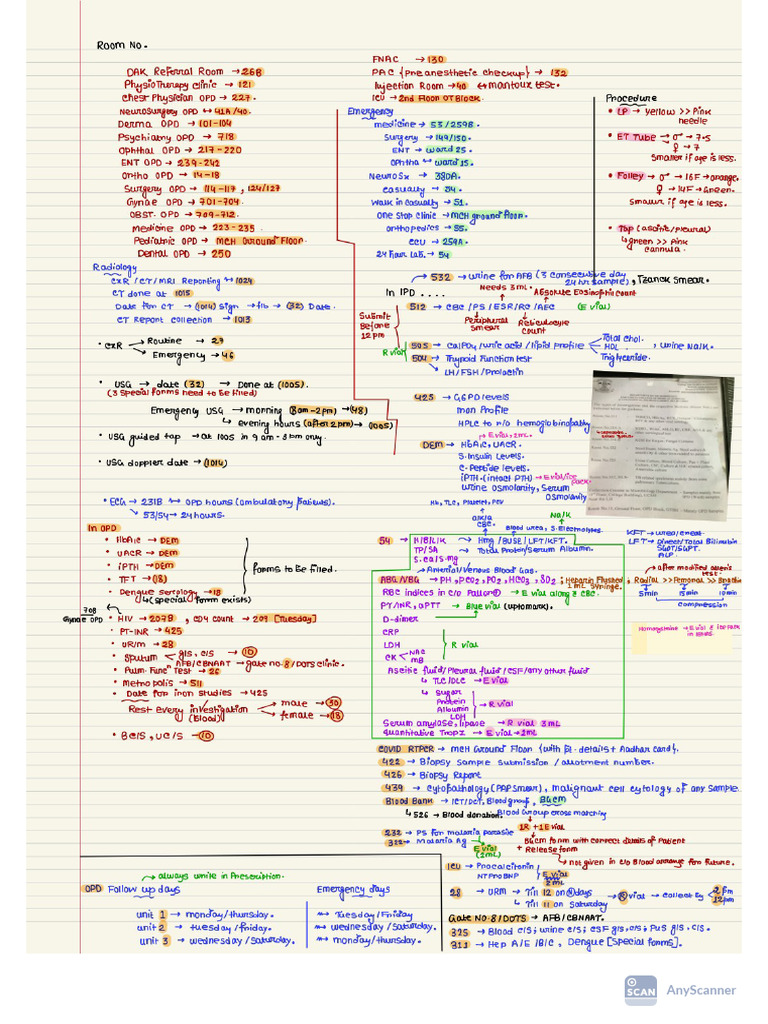 Room No.
DAK Referral Room → 268
Physio Therapy Clinic → 121
Chest Physician OPD → 227.
NeuroSurgery OPD ↔ 41A/40.
Derma OPD → 101-104
Psychiatry OPD → 718
Ophthal OPD → 217-220
ENT OPD → 239-242
Ortho OPD → 14-18
Surgery OPD → 114-117, 124/127
Gynae OPD → 701-704.
OBST. OPD → 709-712.
Medicine OPD → 223-235
Pediatric OPD → MCH Ground Floor
Dental OPD → 250
Radiology
CXR / CT/MRI Reporting ↔ 1024
CT done at 1015
Date for CT → (1014) Sign → (32) Date.
CT Report Collection → 1013
• CXR Routine → 27
Emergency → 46
• USG → date (32) → Done at (1005).
(3 special forms need to be filled)
Emergency USG → morning (8am-2pm) → (48)
↳ evening hours (after 2pm) → (1005)
• USG guided tap → at 1005 in 9am-3pm only.
• USG doppler date → (1014)
• ECG → 231B ↔ OPD hours (ambulatory patients).
53/54 → 24 hours.
FNAC → 130
PAC {Preanesthetic checkup} → 132
Injection Room → 40 ↔ mantoux test.
ICU → 2nd Floor OT Block.
Emergency
medicine → 53/259B.
Surgery → 149/150.
ENT → ward 25.
Ophtha ↔ ward 15.
NeuroSx → 380A.
casualty → 54.
walk in casualty → 51.
one stop clinic → MCH ground floor.
orthopedics → 55.
CCU → 259A.
24 hour Lab. → 54
Procedure
• LP → yellow >> Pink needle
• ET Tube → ♂ → 7.5
♀ → 7
Smaller if age is less.
• Folley → ♂ → 16F → orange.
♀ → 14F → Green.
Smaller if age is less.
• Tap (ascitic/pleural)
↳ green >> Pink cannula.
532 → urine for AFB (3 consecutive day 24 hr sample), Tzanck Smear.
In IPD ....
Needs 3mL.
Absolute Eosinophil count
512 → CBC / PS / ESR/RC / AEC (E vial)
Submit Before 12pm
Peripheral Smear
Reticulocyte count
R vial
505 → Cal/PO4/uric acid / lipid profile
Total chol.
HDL
Triglyceride.
, Urine Na/K.
504 → Thyroid Function test
↳ LH/FSH/Prolactin
425 → G6PD levels
Iron Profile
HPLC to r/o hemoglobinopathy
→ E vial-2mL
DEM → HbA1C, UACR.
S. Insulin Levels.
C-Peptide levels.
iPTH-(intact PTH) → E vial/ice pack.
Urine osmolarity, Serum osmolarity
Hb, TLC, Platelet, PCV
CBC.
Na/K
Blood urea, S. Electrolytes.
54 → H/B/L/K → Hmg /BUSE/LFT/KFT.
TP/SA → Total Protein/Serum Albumin.
S.ca/S.mg
→ Arterial/Venous Blood Gas.
ABG/VBG → PH, PCO2, PO2, HCO3, SO2; Heparin Flushed 1mL Syringe.
RBC indices in c/o Pallor → E vial along c̄ CBC.
PT/INR, aPTT → Blue vial (uptomark).
D-dimer
CRP
LDH
CK NAC MB
R vial
Ascitic fluid/Pleural fluid/CSF/any other fluid
↳ TLC/DLC → E vial
↳ Sugar
Protein
Albumin
LDH
→ R vial
Serum amylase, lipase → R vial 3mL
quantitative TropI → E vial → 2mL
KFT → urea/creat.
LFT → Direct/Total Bilirubin
SGOT/SGPT.
ALP.
→ after modified allen's test.
Radial >> Femoral >> Brachial
5min 15min 10min
compression
Homocysteine → E vial c̄ ice pack
In OPD
• HbA1c → DEM
• UACR → DEM
• iPTH → DEM
• TFT → (18)
• Dengue serology → 18
↳ (special form exists)
Forms to be filled.
708
Gynae OPD
• HIV → 207B, CD4 count → 207 [Tuesday]
• PT-INR → 425
• UR/M → 28
• Sputum g/s, c/s → (10)
AFB/CBNAAT → gate no. 8/DOTS clinic.
• Pulm. Func. Test → 26
• Metropolis → 511
• Date for iron studies → 425
Rest every investigation (Blood)
male → (30)
female → (18)
• BC/S, UC/S → (10)
COVID RTPCR → MCH Ground Floor (with pt. details + Aadhar card).
422 → Biopsy Sample Submission / allotment number.
426 → Biopsy Report
439 → cytopathology (PAP smear), malignant cell cytology of any sample.
Blood Bank → ICT/DCT, Blood group, B&CM
↳ 526 → Blood donation.
Blood Group cross matching
1R + 1E vial
B&CM form with correct details of Patient
+ Release form
→ not given in c/o Blood arrange for future.
232 → PS for malaria parasite
312 → Malaria Ag
E vial (2mL)
ICU → Procalcitonin
NT Pro BNP
E vial 2mL
28 → URM → Till 12 on days
↳ Till 11 on Saturday
→ R vial → collect by 2pm 12pm
Gate No.8/DOTS → AFB/CBNAAT.
325 → Blood c/s; urine c/s; CSF g/s, c/s; Pus g/s, c/s.
311 → Hep A/E/B/C, Dengue [Special forms].
→ always write in Prescription.
OPD Follow up days
unit 1 → monday/Thursday.
unit 2 → tuesday/friday.
unit 3 → wednesday/Saturday.
Emergency days
→ Tuesday/Friday
→ wednesday/Saturday.
→ monday/thursday.
SCAN
AnyScanner